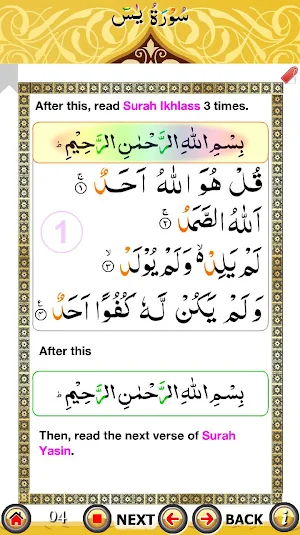 سُوْرَةُ يٰسٓ
After this, read Surah Ikhlass 3 times.
بِسْمِ اللّٰهِ الرَّحْمٰنِ الرَّحِيْمِ ؕ
قُلْ هُوَ اللّٰهُ اَحَدٌ ۚ ﴿۱﴾
اَللّٰهُ الصَّمَدُ ۚ ﴿۲﴾
1
لَمْ يَلِدْ ۙ وَلَمْ يُوْلَدْ ۙ ﴿۳﴾
وَلَمْ يَكُنْ لَّهٗ كُفُوًا اَحَدٌ ﴿۴﴾
After this
بِسْمِ اللّٰهِ الرَّحْمٰنِ الرَّحِيْمِ ؕ
Then, read the next verse of Surah
Yasin.
04 NEXT BACK i